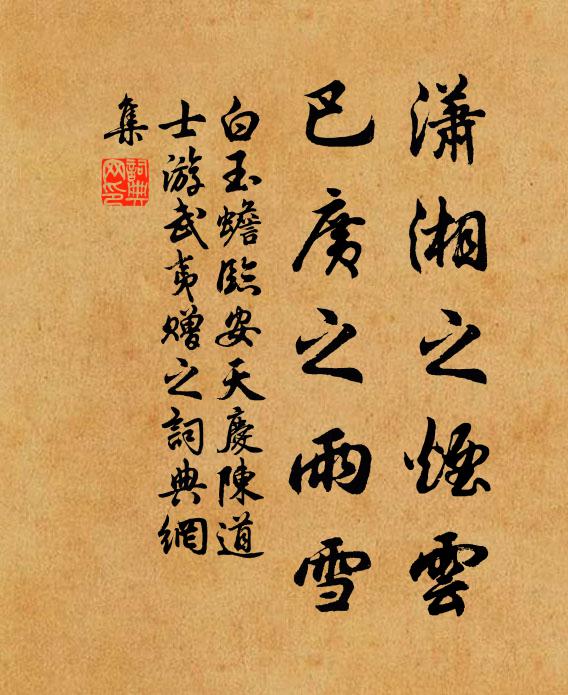 瀟湘之煙雲
巴廣之雨雪
白玉蟾臨安天慶陳道
士游武夷贈之詞典網
集
詞典
网印